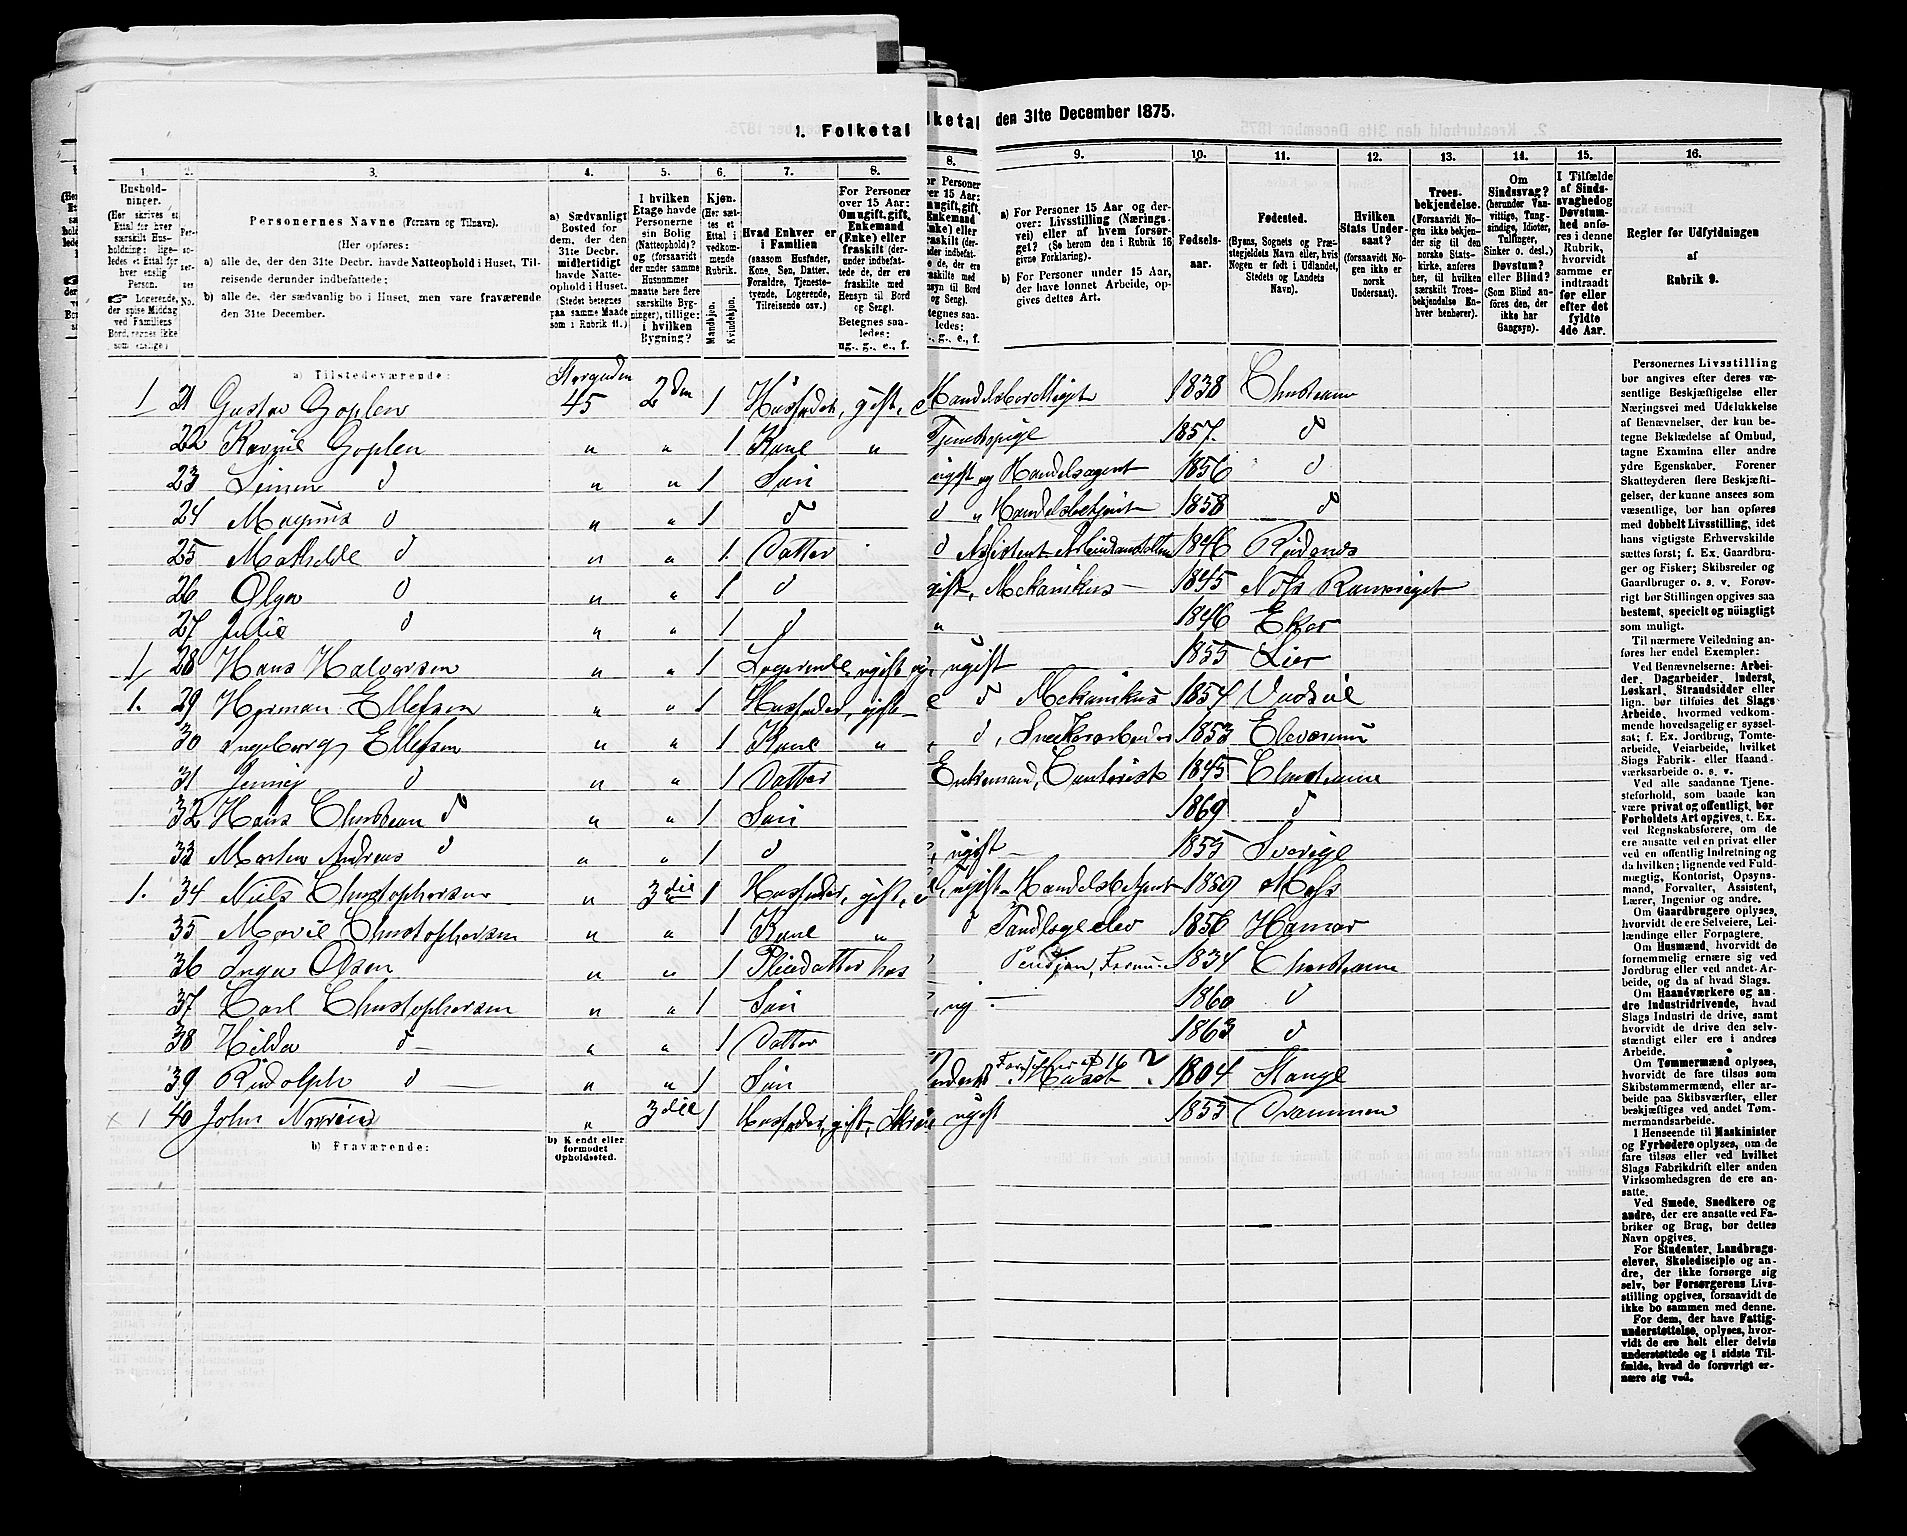 1. Folketal
lketal
den 31te December 1875.
1.
2.
3.
4.
5.
6.
7.
8.
8.
9.
10.
11.
12.
13.
14.
15.
16.
Husholdninger.
(Her skrives et
Ettal for hver
særskilt Husholdning;
ligeledes et Ettal for
hver enslig
Person.
Logerende,
der spise Middag
ved Familiens
Bord, regnes ikke
som enslige)
Personernes
No.
Personernes Navne (Fornavn og Tilnavn).
(Her opføres:
a) alle de, der den 31te Decbr. havde Natteophold i Huset, Tilreisende
derunder indbefattede;
b) alle de, der sædvanlig bo i Huset, men vare fraværende
den 31te December.
a) Sædvanligt
Bosted for
dem, der den
31te Decbr.
midlertidigt
havde Natteophold
i Huset.
(Stedet betegnes
paa samme Maade
som i Rubrik 11.)
I hvilken
Etage havde
Personerne
sin Bolig
(Natteophold)?
og (forsaavidt
der under samme
Husnummer
maatte høre flere
særskilte Bygninger),
tillige:
i hvilken
Bygning?
Kjøn.
(Her sættes
et
Ettal i
vedkommende
Rubrik.
Mandkjøn.
Kvindekjøn.
Hvad Enhver er
i Familien
(saasom Husfader,
Kone, Søn, Datter,
Forældre, Tjenestetyende,
Logerende,
Tilreisende osv.)
For Personer
over 15 Aar:
Om ugift, gift,
Enkemand
(Enke) eller
fraskilt (derunder
indbefattede
de, der ere
fraskilte med
Hensyn til Bord
og Seng).
Betegnes saaledes:
ug., g., e., f.
a) For Personer 15 Aar og derover:
Livsstilling (Næringsvei)
eller af hvem forsørget?
(Se herom den i Rubrik 16
givne Forklaring).
b) For Personer under 15 Aar,
der have lønnet Arbeide, opgives
dettes Art.
Fødselsaar.
Fødested.
(Byens, Sognets og Præstegjeldets
Navn eller, hvis
Nogen er født i Udlandet,
Stedets og Landets
Navn).
Hvilken
Stats Undersaat?
(forsaavidt Nogen
ikke er
norsk
Undersaat).
Troesbekjendelse.
(Forsaavidt Nogen
ikke bekjender
sig til den
norske Statskirke,
anføres
her, til hvilken
særskilt Troesbekjendelse
Enhver
henhører).
Om
Sindssvag?
(herunder Vanvittige,
Tungsindige,
Idioter,
Tullinger,
Sinker o. desl.).
Døvstum?
eller Blind?
(Som Blind anføres
den, der
ikke har
Gangsyn).
I Tilfælde
af Sindssvaghed
og
Døvstumhed
anføres
i denne
Rubrik,
hvorvidt
samme er
indtraadt
før eller
efter det
fyldte
4de Aar.
Regler for Udfyldningen
af
Rubrik 9.
a) Tilstedeværende:
Storgaden
1 21 Gustav Goplen 45 2den 1 Husfader, gift, Handelsberettiget 1838 Christiania
22 Karine Goplen " " 1 Kone " Tjenestepige 1857. d
23 Simen d " " 1 Søn ugift og Handelsagent 1856 d
24 Magnus d " " 1 d d " Handelsbetjent 1858 d
25 Mathilde d " " 1. Datter d Assistent 1846
26 Olga d " " 1 d gift, Mekanikus — 1845
27 Julie d " " 1 d " 1846 Eker
1 28 Hans Halvorsen " " 1 Logerende ugift ugift — 1855 Lier
1. 29 Herman Ellefsen " " 1 Husfader, gift d Mekanikus 1854 Vadsø
30 Ingeborg Ellefsen " " 1 Kone " d, Snekerarbeider 1853 Elverum
31 Jenny d " " 1 Datter Enkemand, Contorist 1845 Christiania
32 Hans Christian d " " 1 Søn 1869 d
33 Morten Andreas d " " 1 d ugift — 1855 Sverige
1. 34 Nils Christophersen " 3die 1 Husfader, gift, ugift Handelsbetjent 1859 Moss
35 Marie Christophersen " " 1 Kone " d Tandlægeelev 1856 Hamar
36 Inga Olsen " " 1 Pleiedatter hos 1834 Christiania
37 Carl Christophersen " " 1 Søn ug — 1860 d
38 Hilda d — " " 1 Datter 1863 d
39 Rudolph d — " " 1 Søn 1804 Stange
1 40 John " 3die 1 Husfader, gift, ugift 1855 Drammen
b) Fraværende:
b) Kendt eller
formodet
Opholdssted.
Personernes Livsstilling
bør angives efter deres væsentlige
Beskjæftigelse eller
Næringsvei med Udelukkelse
af Benævnelser, der kun betegne
Beklædelse af Ombud,
tagne Examina eller andre
ydre Egenskaber. Forener
Skatteyderen flere Beskjæftigelser,
der kunne ansees som
væsentlige, bør han opføres
med dobbelt Livsstilling, idet
hans vigtigste Erhvervskilde
sættes først; f. Ex. Gaardbruger
og Fisker; Skibsreder og
Gaardbruger o. s. v. Forøvrigt
bør Stillingen opgives saa
bestemt, specielt og nøiagtigt
som muligt.
Til nærmere Veiledning anføres
her endel Exempler:
Ved Benævnelserne: Arbeider,
Dagarbeider, Inderst,
Løskarl, Strandsidder eller
lign. bør tilføies det Slags
Arbeide, hvormed vedkommende
hovedsagelig er sysselsat;
f. Ex. Jordbrug, Tomtearbeide,
Veiarbeide, hvilket
Slags Fabrik- eller Haandværksarbeide
o. s. v.
Ved alle saadanne Tjenesteforhold,
som baade kan
være privat og offentligt, bør
Forholdets Art opgives, t. Ex.
ved Regnskabsførere, om de
ere ansatte ved en privat eller
ved en offentlig Indretning og
da hvilken; lignende ved Fuldmægtig,
Kontorist, Opsynsmand,
Forvalter, Assistent,
Lærer, Ingeniør og andre.
Om Gaardbrugere oplyses,
hvorvidt de ere Selveiere, Leilændinge
eller Forpagtere.
Om Husmænd, hvorvidt de
fornemmelig ernære sig ved
Jordbrug eller ved andet Arbeide,
og da af hvad Slags.
Om Haandværkere og andre
Industridrivende, hvad
Slags Industri de drive, samt
hvorvidt de drive den selvstændigt
eller ere i andres
Arbeide.
Om Tømmermænd oplyses,
hvorvidt de fare tilsøs som
Skibstømmermænd, eller arbeide
paa Skibsværfter, eller
beskjæftiges ved andet Tømmermandsarbeide.
I Henseende til Maskinister
og Fyrbødere oplyses, om de
fare tilsøs eller ved hvilket
Slags Fabrikdrift eller anden
Virksomhedsgren de ere ansatte.
Ved Smede, Snedkere og
andre, der ere ansatte ved Fabriker
og Brug, bør dettes
Navn opgives.
For Studenter, Landbrugselever,
Skoledisciple og andre,
der ikke forsørge sig
selv, bør Forsørgerens Livsstilling
opgives, forsaavidt de
ikke bo sammen med denne.
For dem, der have Fattigunderstøttelse,
oplyses, hvorvidt
de ere helt eller delvis
understøttede og i sidste Tilfælde,
hvad de forøvrigt ernære
sig ved.